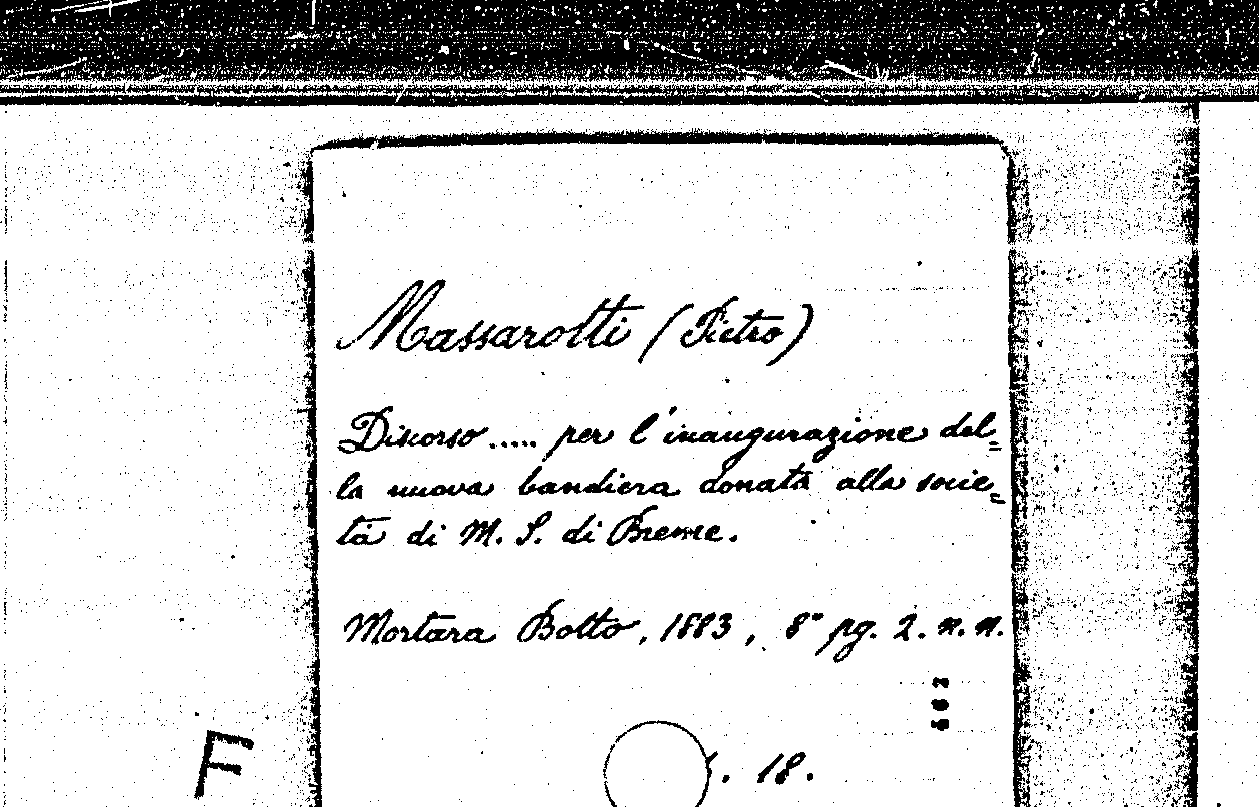 Massarotti (Pietro)
Discorso ..... per l'inaugurazione del=
la nuova bandiera donata alla socie=
tà di M. S. di Breme.
Mortara Botto, 1883, 8° pg. 2. n. n.
. 18.
F